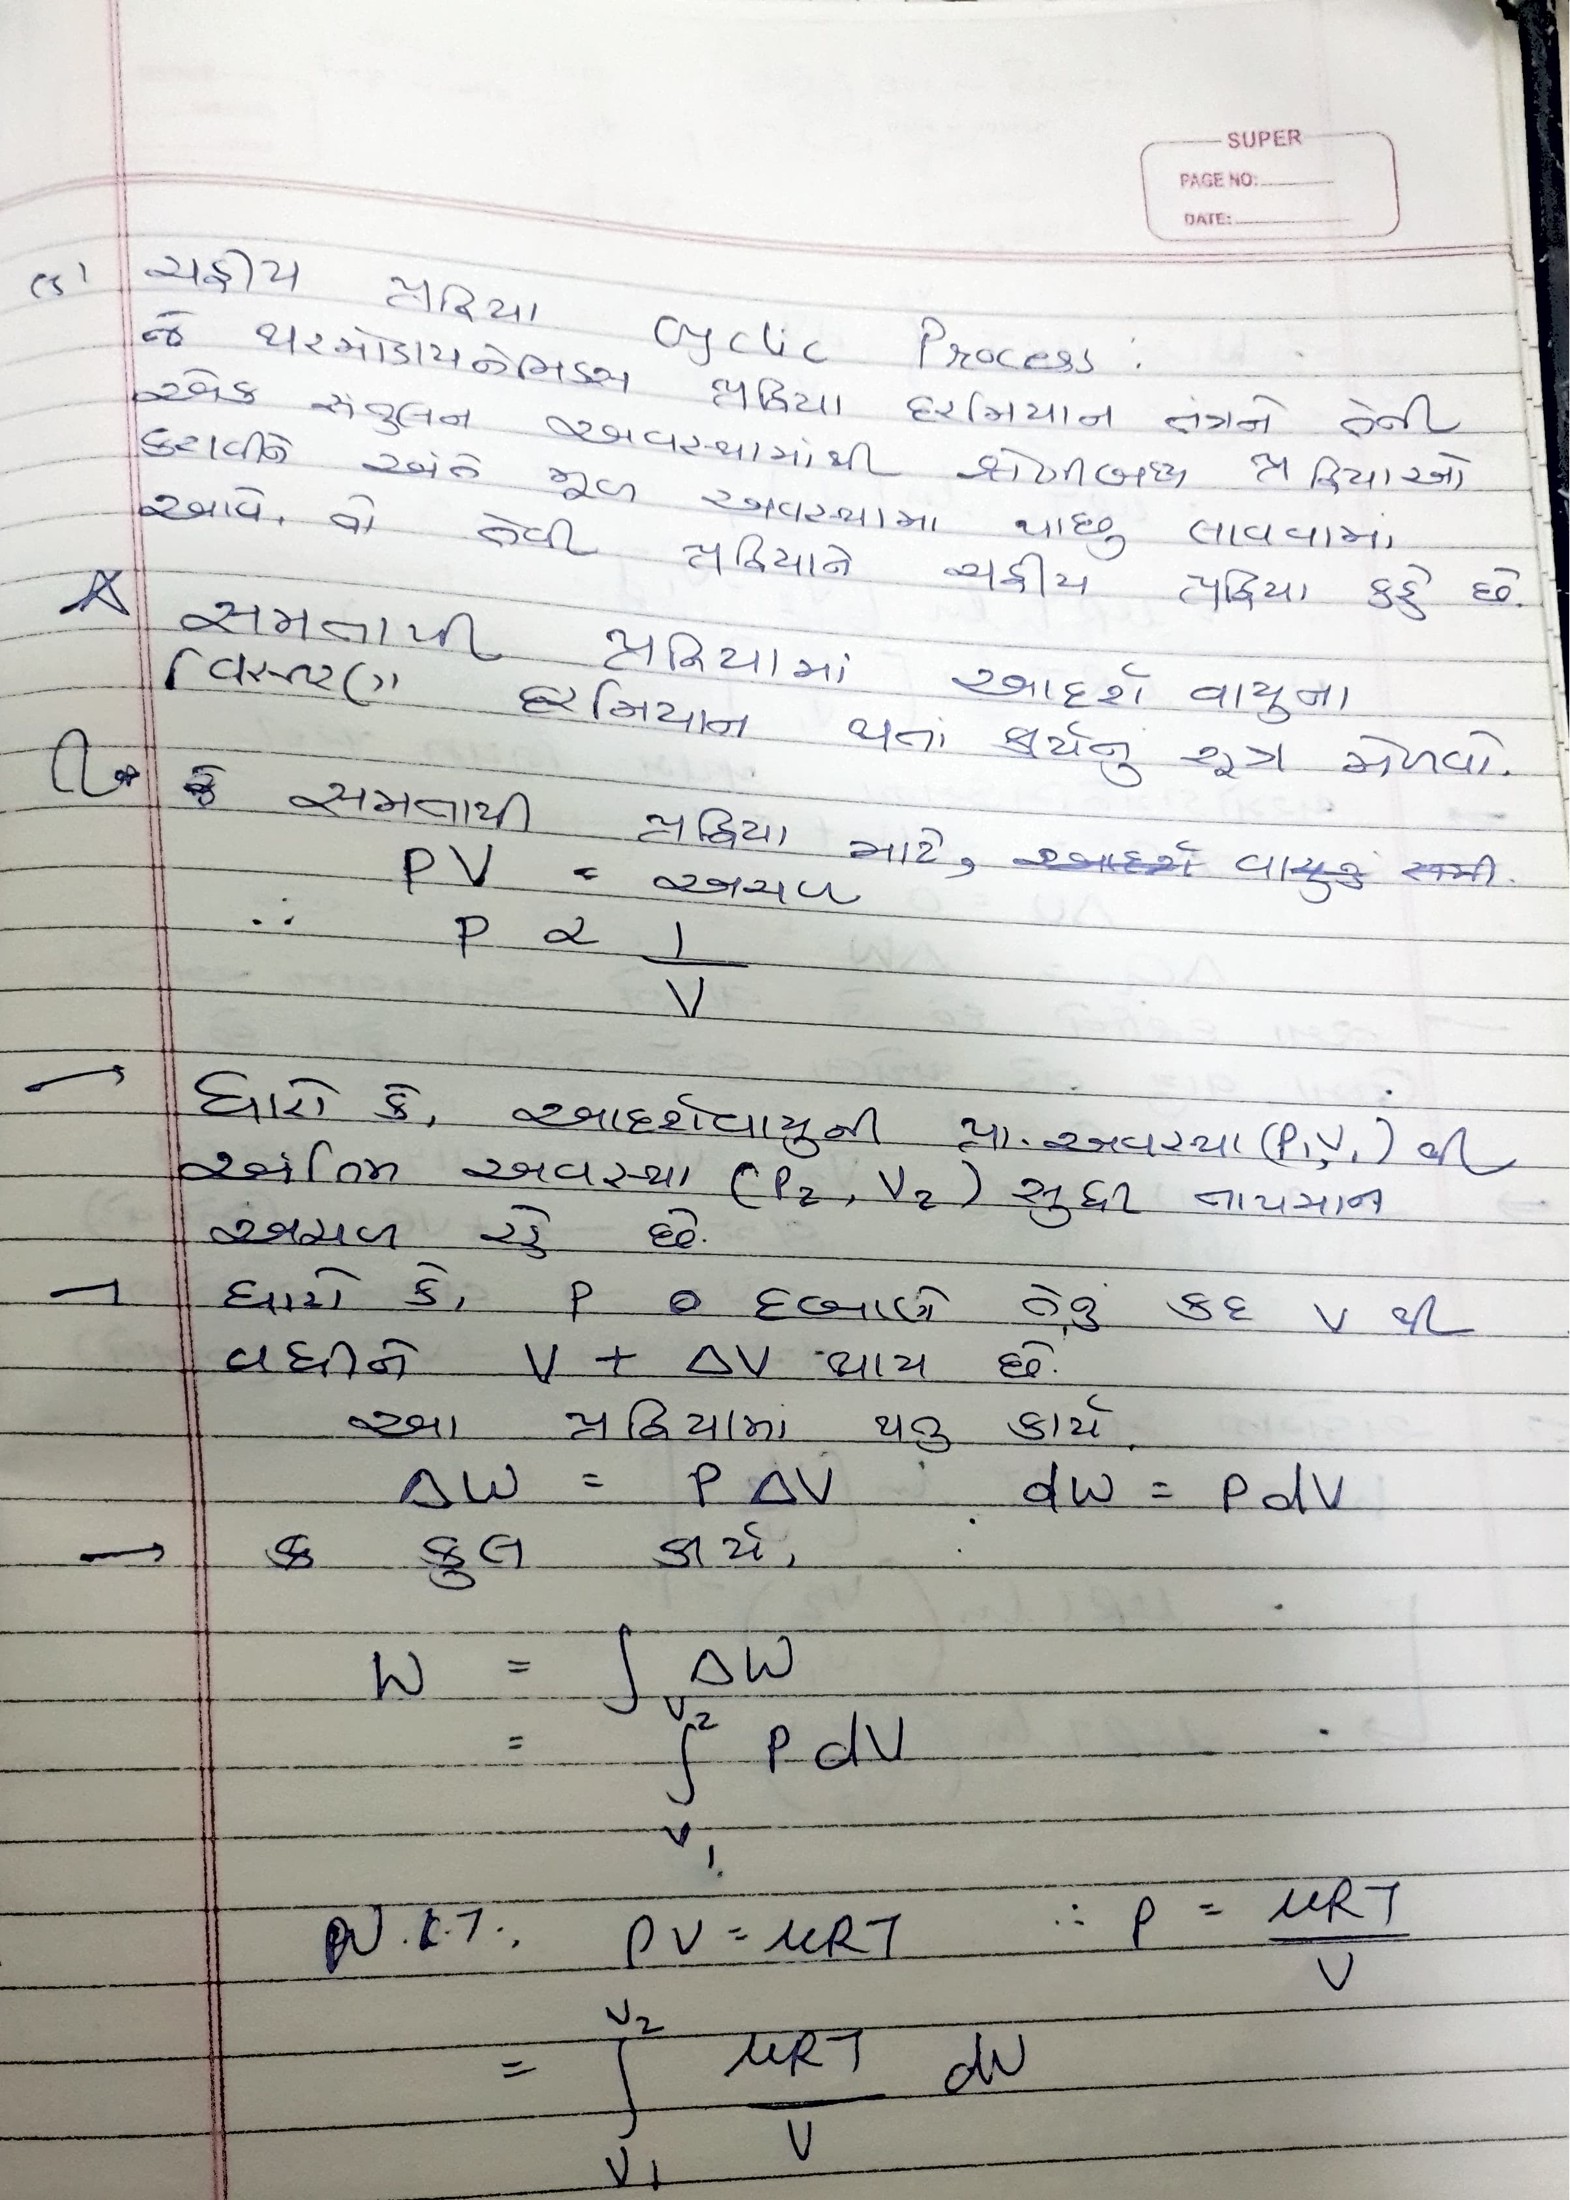 SUPER
PAGE NO:
DATE:
ચક્રીય પ્રક્રિયા Cyclic Process :
જે થરમોડાયનેમિક્સ પ્રક્રિયા દરમિયાન તંત્રને તેની
એક સંતુલન અવસ્થામાંથી શ્રેણીબધ્ધ પ્રક્રિયાઓ
કરાવીને અંતે મૂળ અવસ્થામા પાછુ લાવવામાં
આવે, તો તેવી પ્રક્રિયાને ચક્રીય પ્રક્રિયા કહે છે.
સમતાપી પ્રક્રિયામાં આદર્શ વાયુના
વિસ્તરણ દરમિયાન થતાં કાર્યનુ સૂત્ર મેળવો.
સમતાપી પ્રક્રિયા માટે, આદર્શ વાયુનું
PV = અચળ
∴ P ∝ 1/V
→ ધારો કે, આદર્શવાયુની પ્રા. અવસ્થા (P₁,V₁) થી
અંતિમ અવસ્થા (P₂, V₂) સુધી તાપમાન
અચળ રહે છે.
→ ધારો કે, P દબાણે તેનુ કદ V થી
વધીને V + ΔV થાય છે.
આ પ્રક્રિયામાં થતુ કાર્ય,
ΔW = P ΔV ∴ dW = PdV
→ કુલ કાર્ય,
W = ∫ ΔW
= ∫_{V₁}^{V₂} P dV
PV = μRT ∴ P = μRT/V
= ∫_{V₁}^{V₂} μRT/V dV